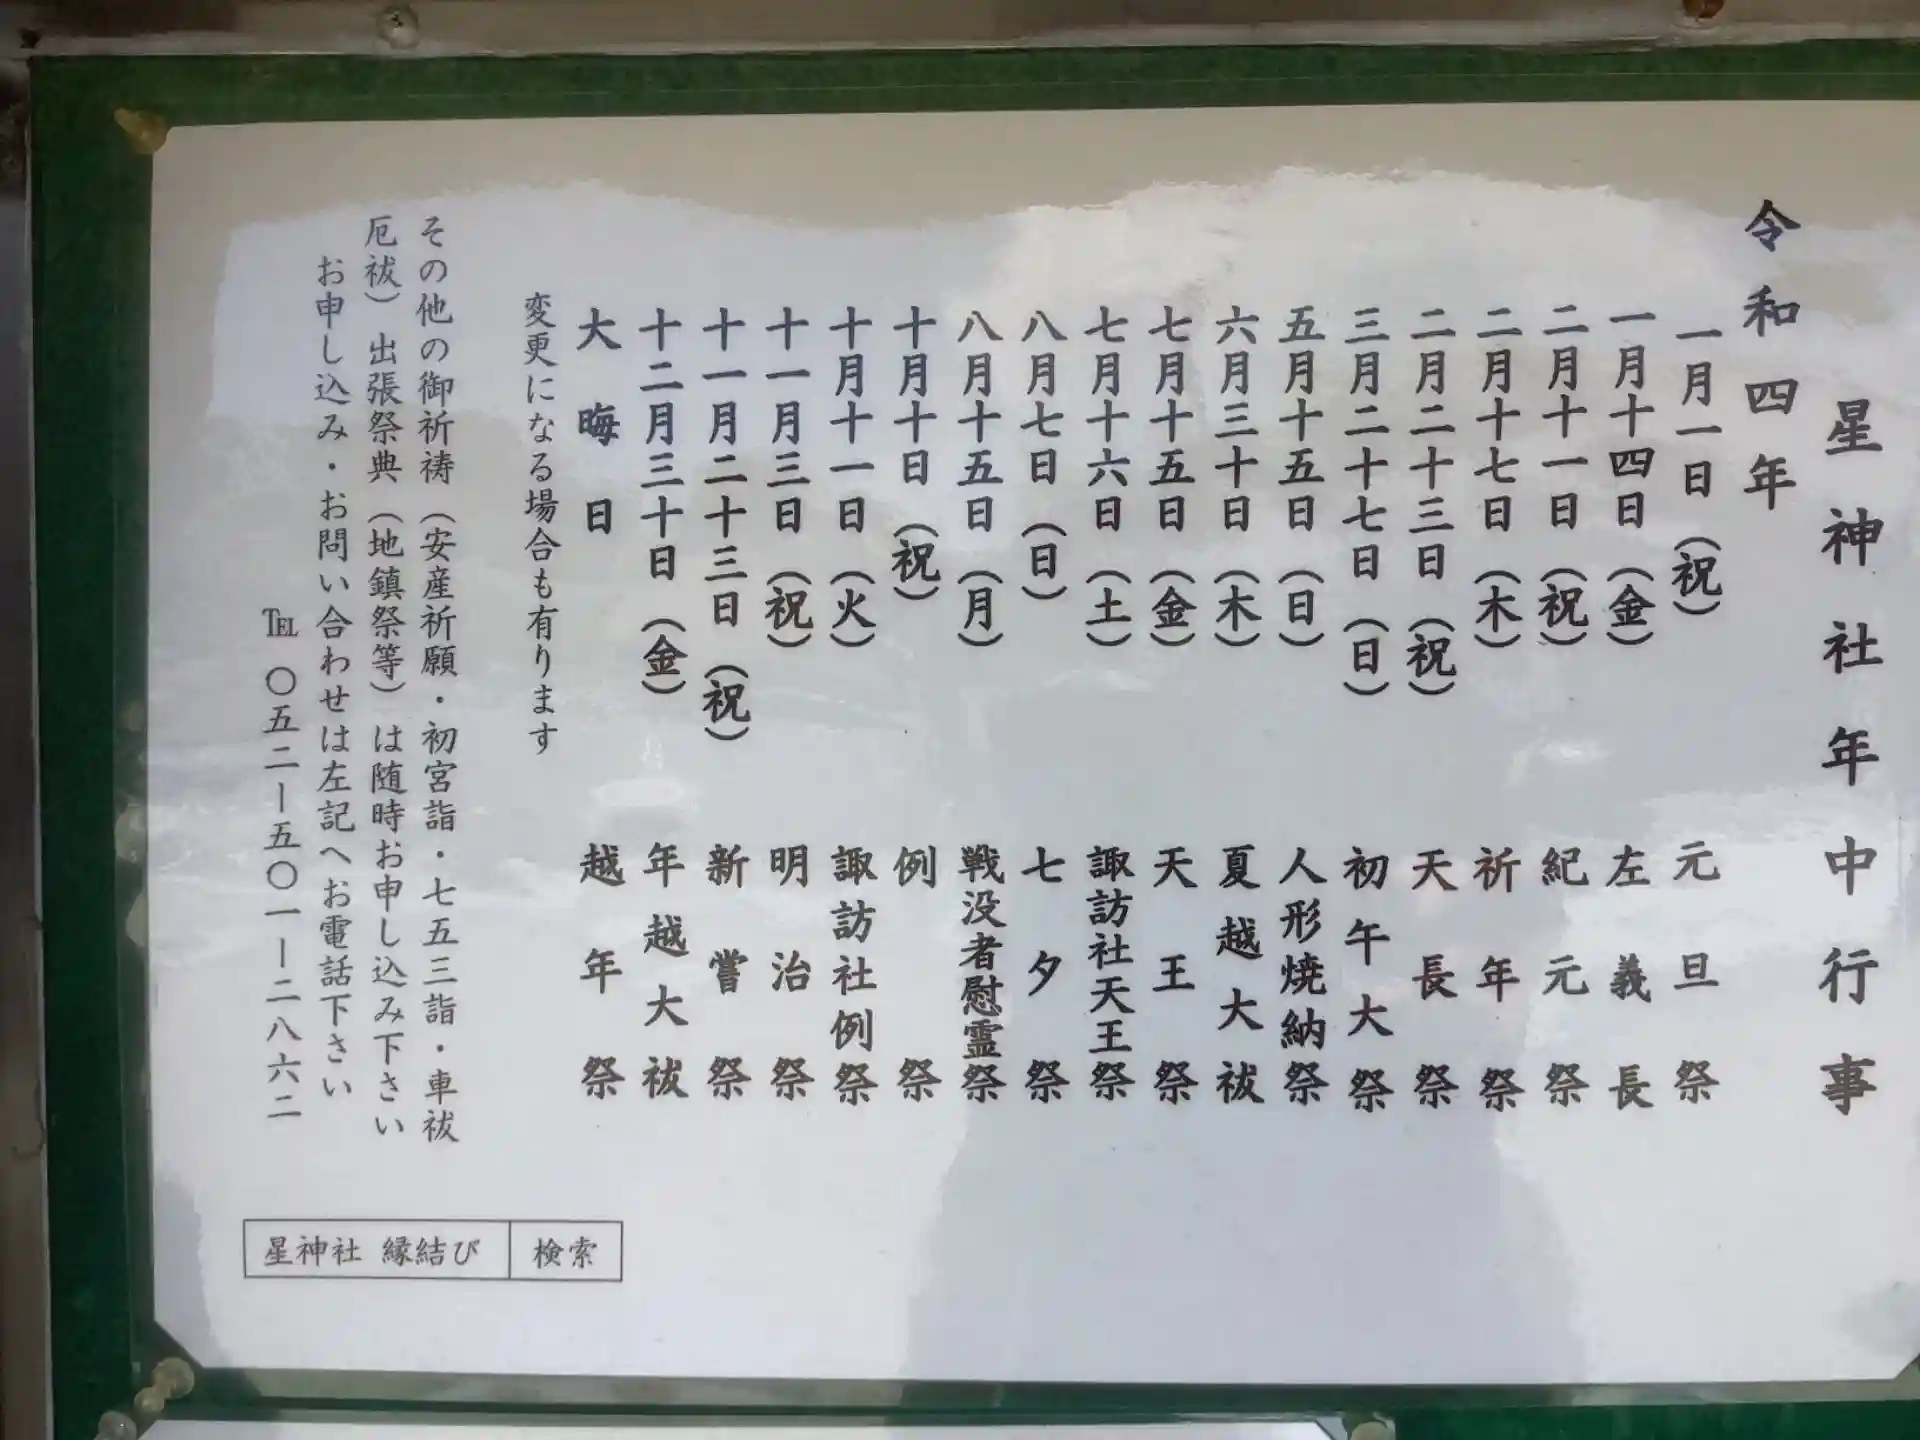 星神社年中行事
令和四年
一月一日（祝） 元旦祭
一月十四日（金） 左義長
二月十一日（祝） 紀元祭
二月十七日（木） 祈年祭
二月二十三日（祝） 天長祭
三月二十七日（日） 初午大祭
五月十五日（日） 人形焼納祭
六月三十日（木） 夏越大祓
七月十五日（金） 天王祭
七月十六日（土） 諏訪社天王祭
八月七日（日） 七夕祭
八月十五日（月） 戦没者慰霊祭
十月十日（祝） 例祭
十月十一日（火） 諏訪社例祭
十一月三日（祝） 明治祭
十一月二十三日（祝） 新嘗祭
十二月三十日（金） 年越大祓
大晦日 越年祭
変更になる場合も有ります
その他の御祈祷（安産祈願・初宮詣・七五三詣・車祓
厄祓）出張祭典（地鎮祭等）は随時お申し込み下さい
お申し込み・お問い合わせは左記へお電話下さい
℡ 〇五二ー五〇一ー二八六二
星神社 縁結び 検索